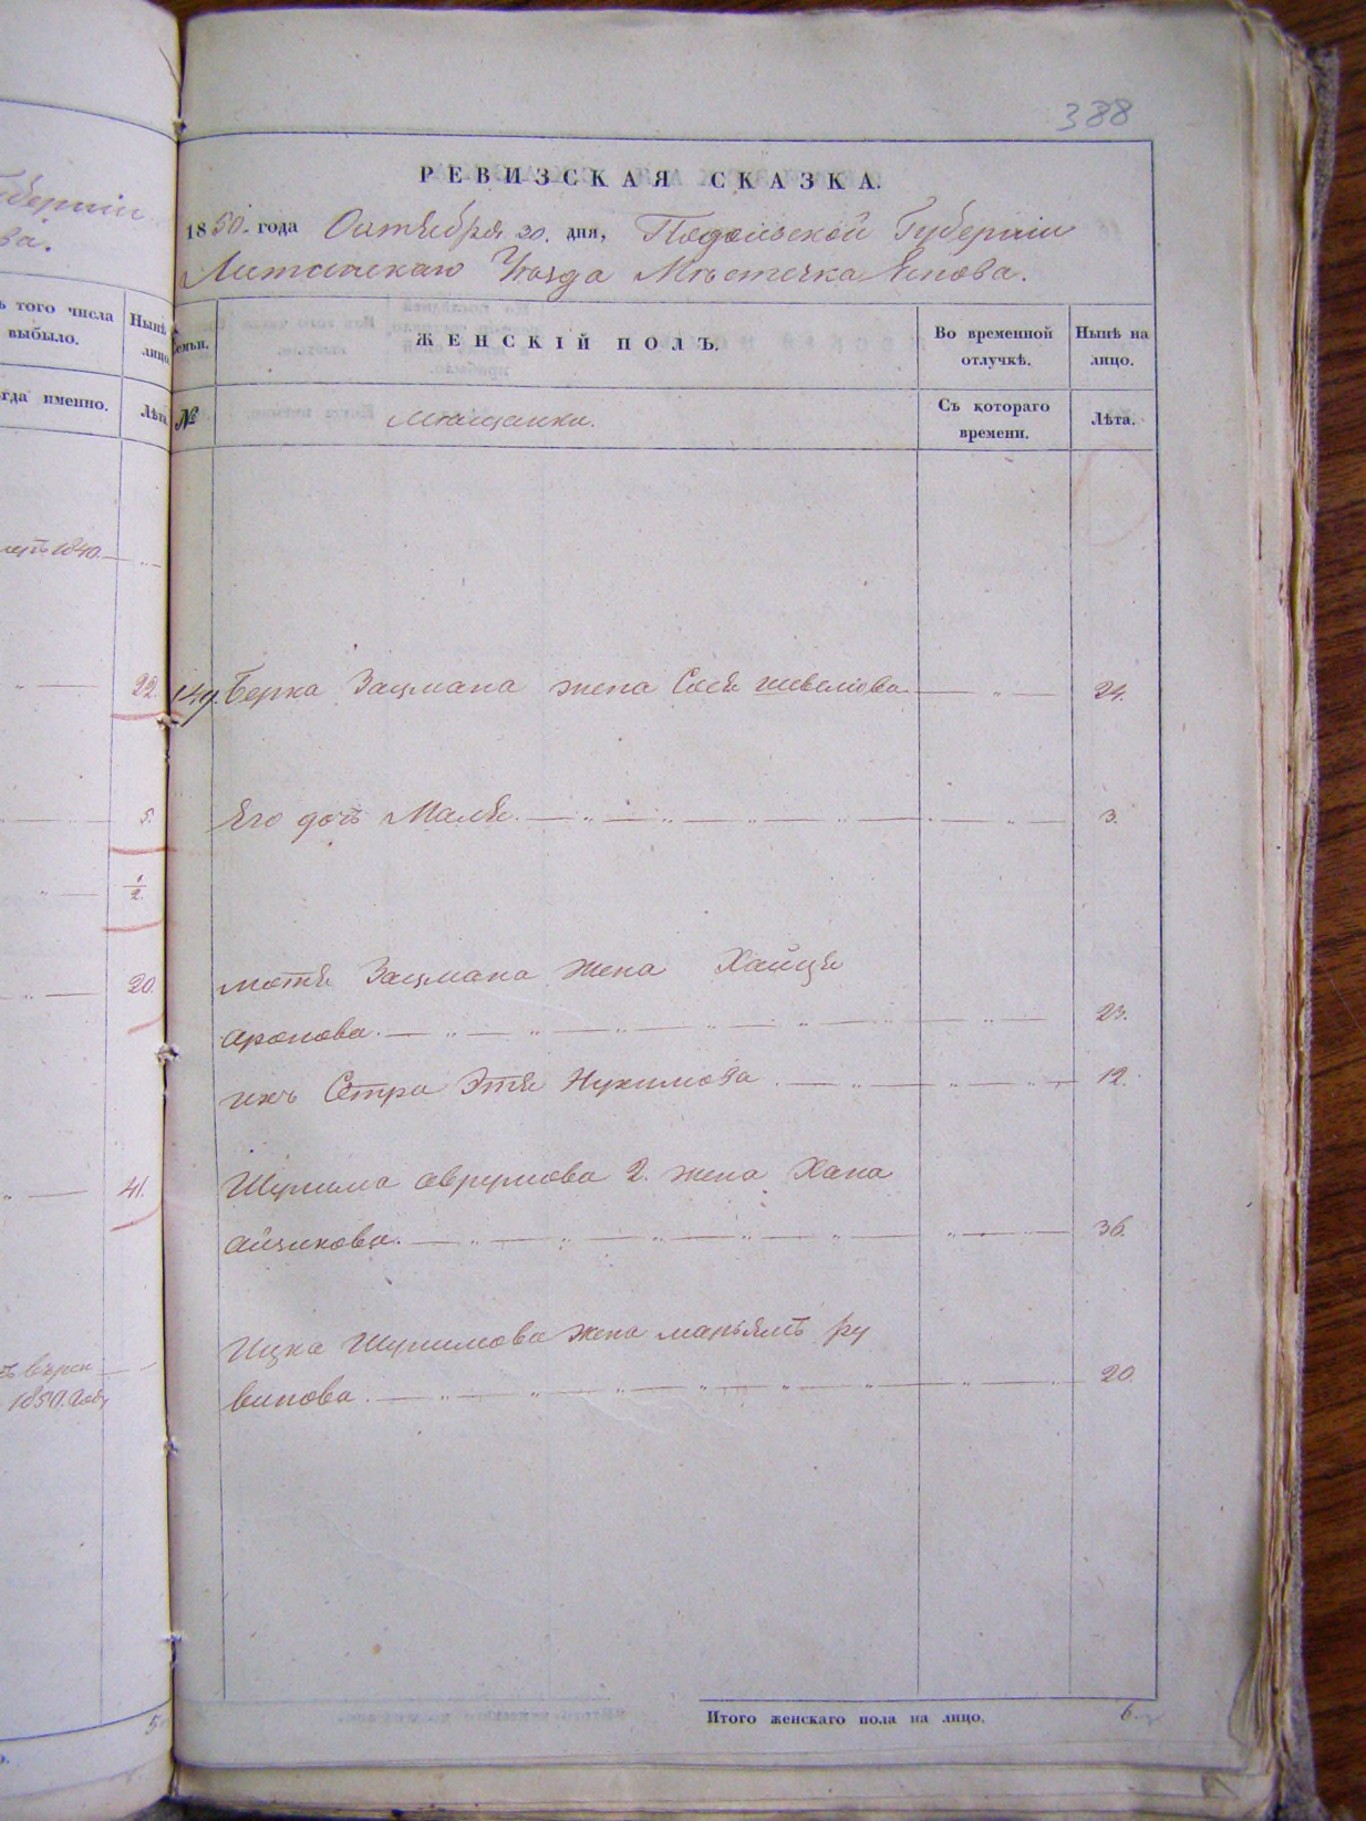 388
РЕВИЗСКАЯ СКАЗКА.
1850. года Октября 20. дня, Подольской Губерніи
Литинскаго Уѣзда Мѣстечка Янова.
Семьи.
ЖЕНСКІЙ ПОЛЪ.
Во временной отлучкѣ.
Нынѣ на лицо.
№
Мѣщанки.
Съ котораго времени.
Лѣта.
149. Берка Зацмана жена Сося шевелова 24.
Его дочь Маля. 3.
мотя Зацмана жена Хайця
аронова. 23.
ихъ Сетра Этя Нухимова. 12.
Шулима аврумова 2. жена Хана
айзикова. 36.
Ицка Шулимова жена марьямъ ру
винова. 20.
Итого женскаго пола на лицо. 6.
губерніи
ва.
того числа выбыло.
Нынѣ лицо
гда именно.
Лѣта
1840.
22.
5.
1/2.
20.
41.
5